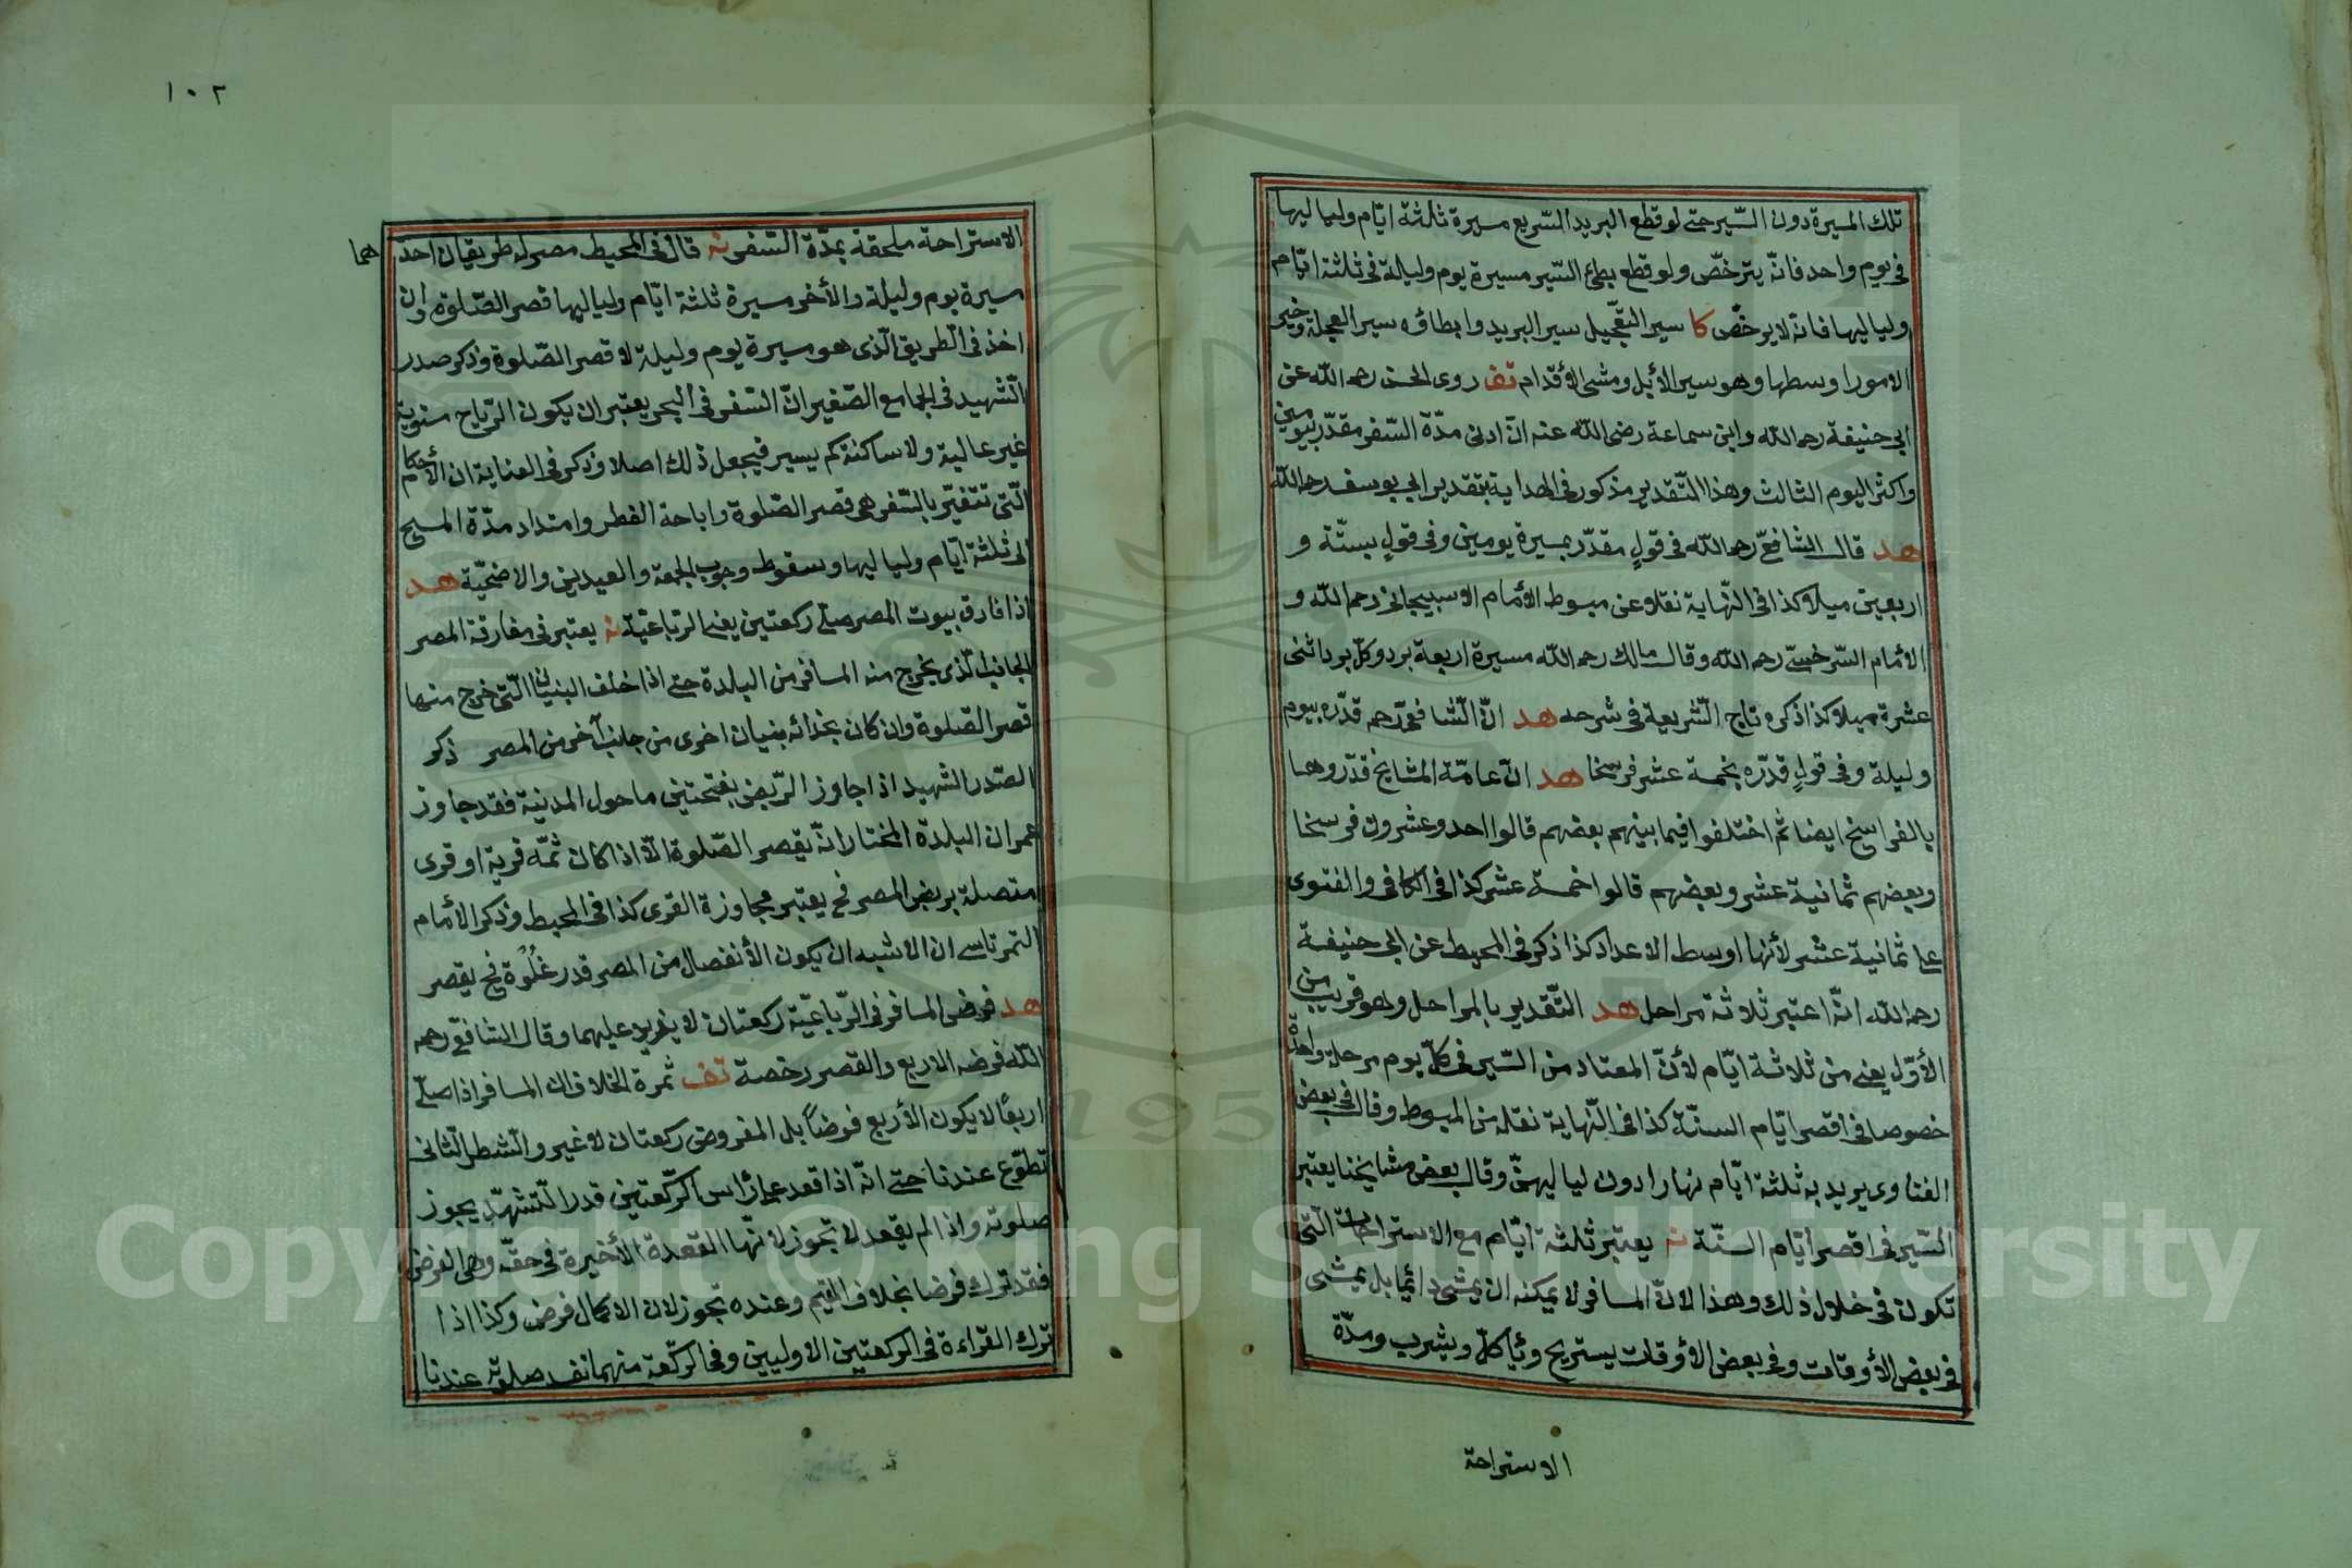 تلك المسيرة دون السّير حتى لو قطع البريد السّريع مسيرة ثلثة ايّام ولياليها
فى يوم واحد فانّه يترخّص ولو قطع بطئ السّير مسيرة يوم وليلة فى ثلثة ايّام
ولياليها فانه لا يرخّص كا سير التّعجيل سير البريد وابطاؤه سير العجلة وخير
الامور اوسطها وهو سير الأبل ومشى الأقدام تف روى الحسن رحمه الله عن
ابى حنيفة رحمه الله وابن سماعة رضى الله عنه انّ ادنى مدّة السّفر مقدّر بيومين
واكثر اليوم الثالث وهذا التّقدير مذكور فى الهداية بتقدير ابى يوسف رحمه الله
هد قال الشافعىّ رحمه الله فى قولٍ مقدّر بمسيرة يومين وفى قولٍ بستّة و
اربعين ميلا كذا فى النّهاية نقلا عن مبسوط الأمام الاسبيجابى رحمه الله و
الأمام السّرخسىّ رحمه الله وقال مالك رحمه الله مسيرة اربعة برد وكلّ برد اثنى
عشرة ميلا كذا ذكره تاج الشّريعة فى شرحه هد انّ الشّافعىّ رحمه قدّره بيوم
وليلة وفى قولٍ قدّره بخمسة عشر فرسخا هد انّ عامّة المشايخ قدّروها
بالفراسخ ايضا ثم اختلفوا فيما بينهم بعضهم قالوا احد وعشرون فرسخا
وبعضهم ثمانية عشر وبعضهم قالوا خمسة عشر كذا فى الكافى والفتوى
على ثمانية عشر لأنها اوسط الاعداد كذا ذكر فى المحيط عن ابى حنيفة
رحمه الله انّه اعتبر ثلاثة مراحل هد التّقدير بالمراحل وهو قريب من
الأوّل يعنى من ثلاثة ايّام لأنّ المعتاد من السّير فى كلّ يوم مرحلة واحدة
خصوصا فى اقصر ايّام السنّة كذا فى النّهاية نقله من المبسوط وقال فى بعض
الفتاوى يريد به ثلثة ايّام نهارا دون لياليهنّ وقال بعض مشايخنا يعتبر
السّير فى اقصر ايّام السنّة نه يعتبر ثلثة ايّام مع الاستراحات الّتى
تكون فى خلال ذلك وهذا لانّ المسافر لا يمكنه ان يمشى دائما بل يمشى
فى بعض الأوقات وفى بعض الأوقات يستريح ويأكل ويشرب ومدّة
الاستراحة
١٠٢
الاستراحة ملحقة بمدّة السّفر نه قال فى المحيط مصر له طريقان احدهما
مسيرة يوم وليلة والأخر مسيرة ثلثة ايّام ولياليها قصر الصّلوة وان
اخذ فى الطّريق الّذى هو مسيرة يوم وليلة لا قصر الصّلوة وذكر صدر
الشّهيد فى الجامع الصّغير انّ السّفر فى البحر يعتبر ان يكون الرّياح مستوية
غير عالية ولا ساكنة كم يسير فيجعل ذلك اصلا وذكر فى العناية ان الأحكام
الّتى تتغيّر بالسّفر هى قصر الصّلوة واباحة الفطر وامتداد مدّة المسح
الى ثلثة ايّام ولياليها وسقوط وجوب الجمعة والعيدين والاضحيّة هد
اذا فارق بيوت المصر صلّى ركعتين يعنى الرّباعيّة نه يعتبر فى مفارقة المصر
الجانب الّذى يخرج منه المسافر من البلدة حتى اذا خلف البنيان الّتى خرج منها
قصر الصّلوة وان كان بحذائه بنيان اخرى من جانب آخر من المصر ذكر
الصّدر الشهيد اذا جاوز الرّبض بفتحتين ما حول المدينة فقد جاوز
عمران البلدة المختار انّه يقصر الصّلوة الّا اذا كان ثمّه قرية او قرى
متصلة بربض المصر فح يعتبر مجاوزة القرى كذا فى المحيط وذكر الأمام
التمرتاسى ان الاشبه ان يكون الأنفصال من المصر قدر غُلْوة فح يقصر
هد فرض المسافر فى الرّباعيّة ركعتان لا يزيد عليهما وقال الشافعىّ رحمه
اللّه فرضه الاربع والقصر رخصة تف ثمرة الخلاف ان المسافر اذا صلّى
اربعًا لا يكون الأربع فرضاً بل المفروض ركعتان لا غير والشطر الثّانى
تطوّع عندنا حتى انّه اذا قعد على رأس الرّكعتين قدر التّشهّد يجوز
صلوته واذا لم يقعد لا تجوز لانّها القعدة الأخيرة فى حقّه وهى الفرض
فقد ترك فرضا بخلاف المقيم وعنده تجوز لان الاكمال فرض وكذا اذا
ترك القراءة فى الركعتين الاوليين وفى الركّعة منهما تفسد صلوته عندنا
Copyright © King Saud University
1957